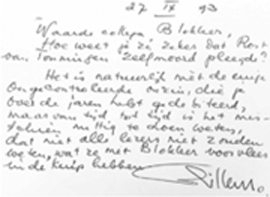 27 IX 93
Waarde collega Blokker,
Hoe weet je zo zeker dat Rost
van Tonningen zelfmoord pleegde?
Het is natuurlijk niet de enige
ongecontroleerde onzin, die je
over de jaren hebt gedebiteerd,
maar van tijd tot tijd is het mis-
schien nuttig te doen weten,
dat niet alle lezers niet zouden
weten, wat ze met Blokker voor vlees
in de kuip hebben